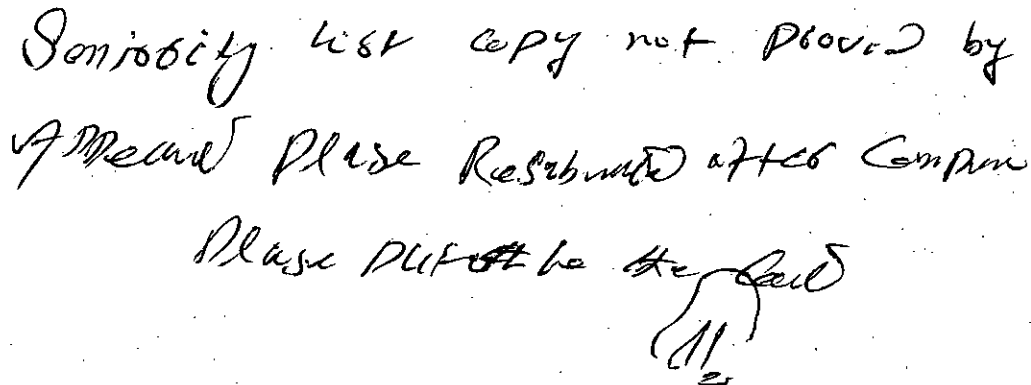 Seniority list copy not provid by
Appeand Please Resubmitted after Compun
Please Put be the